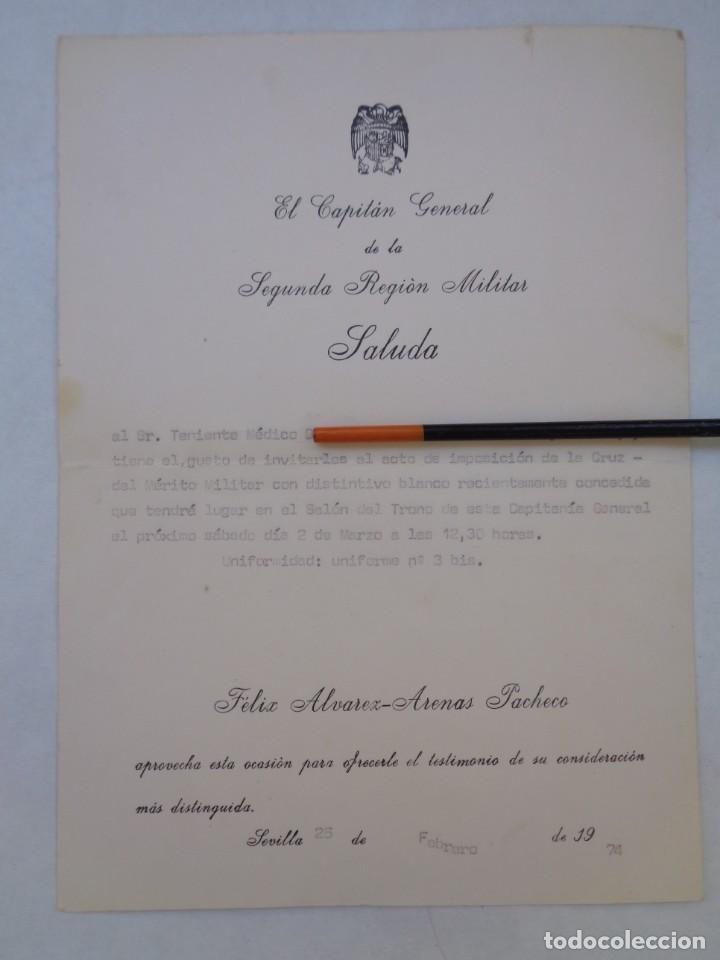 El Capitán General
de la
Segunda Región Militar
Saluda
al Sr. Teniente Médico
tiene el, gusto de invitarles al acto de imposición de la Cruz -
del Mérito Militar con distintivo blanco recientemente concedida
que tendrá lugar en el Salón del Trono de esta Capitanía General
el próximo sábado día 2 de Marzo a las 12,30 horas.
Uniformidad: uniforme nº 3 bis.
Félix Alvarez-Arenas Pacheco
aprovecha esta ocasión para ofrecerle el testimonio de su consideración
más distinguida.
Sevilla 25 de Febrero de 1974
todocoleccion
todocoleccion.net